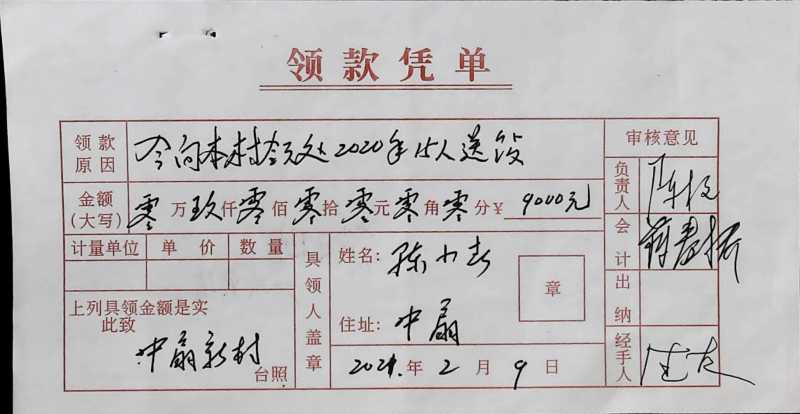 领款凭单
领款原因 今向本村领处2020年15人送饭 审核意见
金额(大写) 零万玖仟零佰零拾零元零角零分¥ 9000元
负责人
会计
计量单位 单价 数量
具领人盖章
姓名: 陈小春
章
出纳
上列具领金额是实
此致
住址: 中扇
中扇新村
台照
2021.年2月9日
经手人